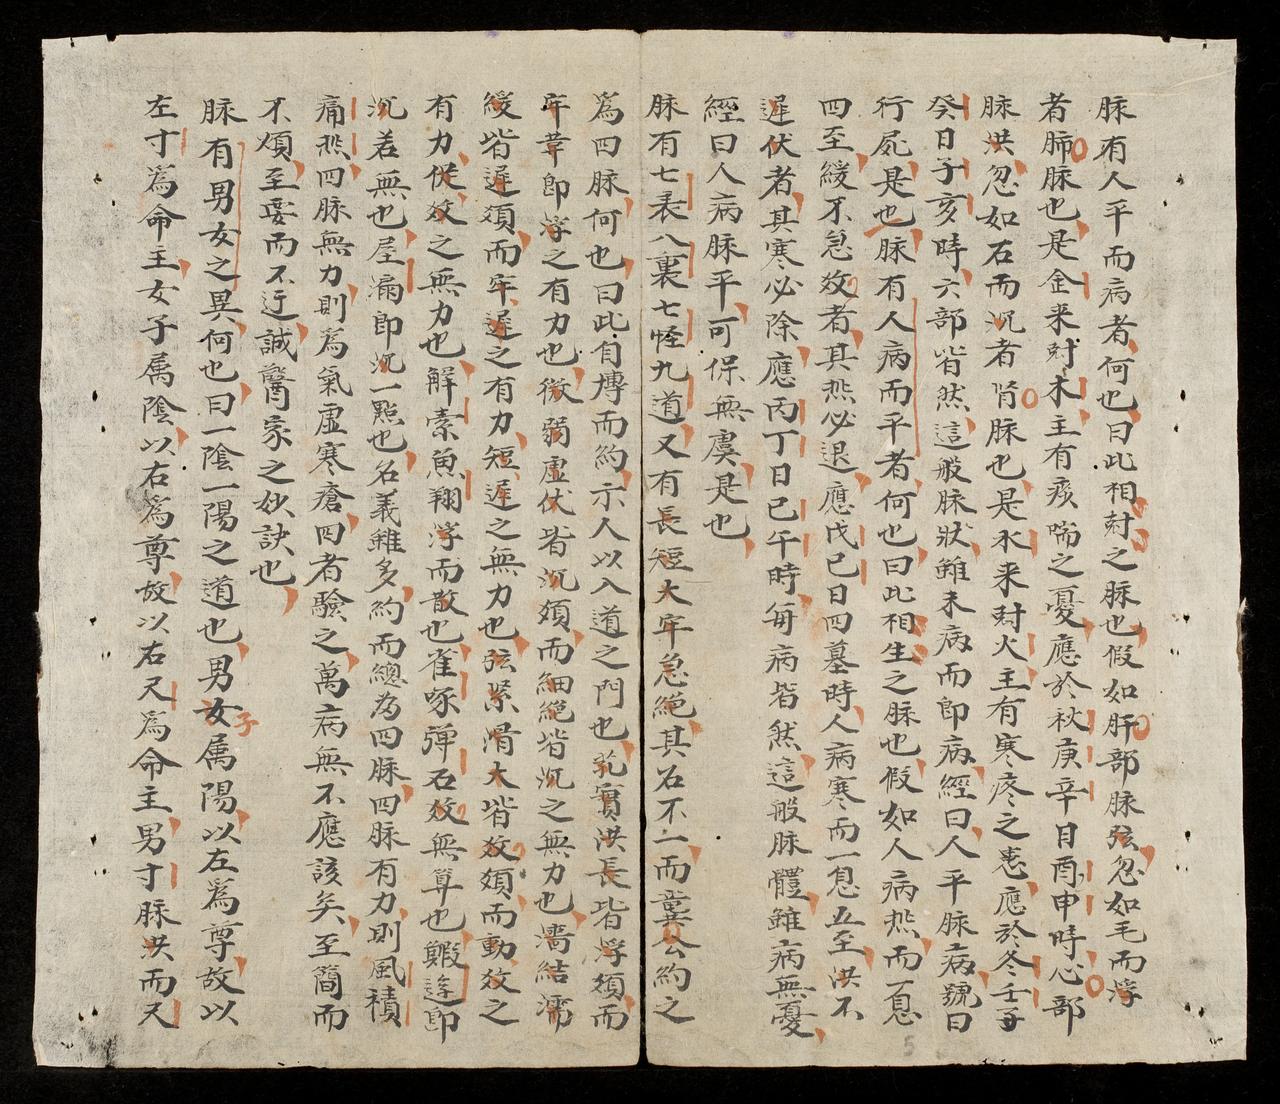 脉有人平而病者何也曰此相尅之脉也假如肝部脉弦忽如毛而浮
者肺脉也是金来尅木主有痰喘之憂應於秋庚辛日酉申時心部
脉洪忽如石而沉者肾脉也是水来尅火主有寒疼之患應於冬壬子
癸日子亥時六部皆然這般脉状雖未病而即病經曰人平脉病號曰
行屍是也脉有人病而平者何也曰此相生之脉也假如人病热而一息
四至緩不急効者其热必退應戊己日四墓時人病寒而一息五至洪不
遲伏者其寒必除應丙丁日巳午時每病皆然這般脉體雖病無憂
經曰人病脉平可保無虞是也
脉有七表八裏七怪九道又有長短大牢急絕其名不一而叢公約之
為四脉何也曰此自博而約示人以入道之門也芤實洪長皆浮須而
牢革即浮之有力也微弱虛伏皆沉須而細絕皆沉之無力也濇結濡
緩皆遲須而牢遲之有力短遲之無力也弦緊滑大皆效須而動效之
有力促效之無力也解索魚翔浮而散也雀啄彈石效無算也鰕遊即
沉若無也屋漏即沉一點也名義雖多約而總為四脉四脉有力則風積
痛热四脉無力則為氣虛寒瘡四者驗之萬病無不應該矣至簡而
不煩至要而不迂誠醫家之妙訣也
脉有男女之異何也曰一陰一陽之道也男女子属陽以左為尊故以
左寸為命主女子属陰以右為尊故以右尺為命主男寸脉洪而尺
5